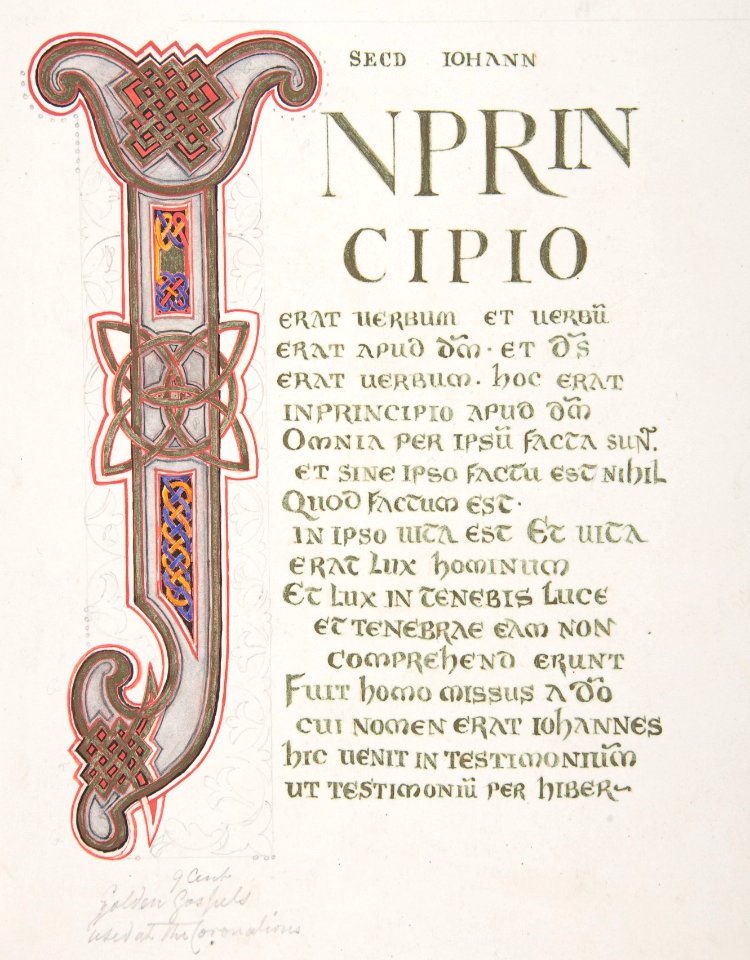 SECD IOHANN
INPRIN
CIPIO
ERAT UERBUM ET UERBŪ
ERAT APUD DM̄· ET DS̄
ERAT UERBUM. HOC ERAT
INPRINCIPIO APUD DM̄
OMNIA PER IPSŪ FACTA SUNT.
ET SINE IPSO FACTU EST NIHIL
QUOD FACTUM EST·
IN IPSO UITA EST ET UITA
ERAT LUX HOMINUM
ET LUX IN TENEBIS LUCE
ET TENEBRAE EAM NON
COMPREHEND ERUNT
FUIT HOMO MISSUS A DŌ
CUI NOMEN ERAT IOHANNES
HIC UENIT IN TESTIMONIUM̄
UT TESTIMONIŪ PER HIBER~
9 Cent
Golden Gospels
used at the Coronations